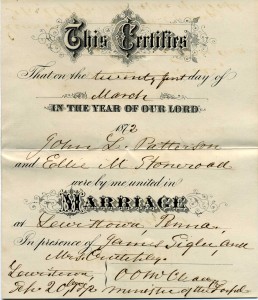 This Certifies
That on the twenty first day of
March
IN THE YEAR OF OUR LORD
1872
John L. Patterson
and Edlie M Stoneroad
were by me united in
MARRIAGE
at Lewistown, Penna,
In presence of James and
Mrs.
Lewistown, O O McClean
20 1872 minister of the Gospel